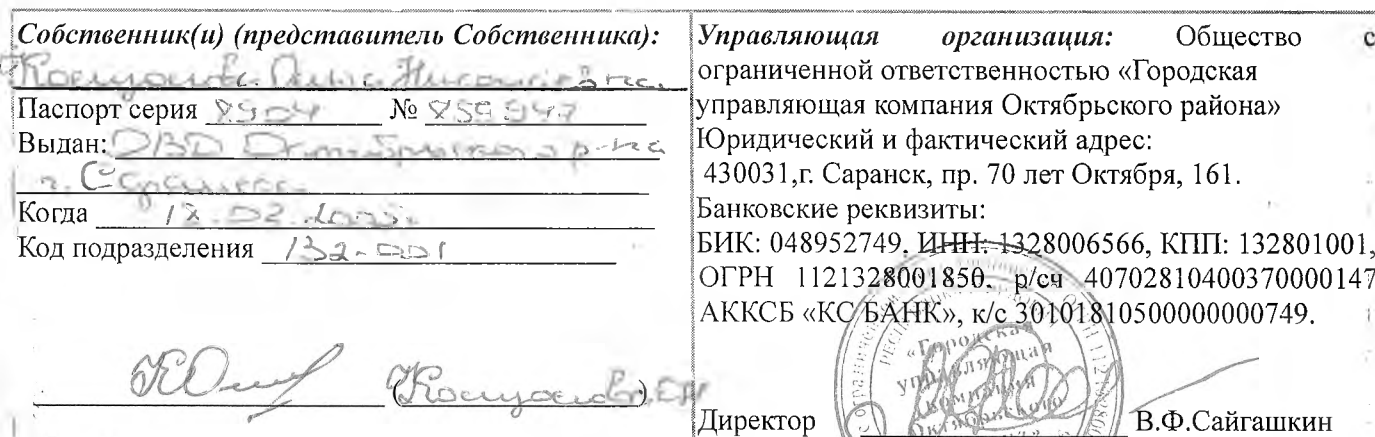 Собственник(и) (представитель Собственника):
Паспорт серия 8904 № 859947
Выдан: ОВД Октябрьского р-на
г. Саранска
Когда
Код подразделения 132-001
Управляющая организация: Общество с
ограниченной ответственностью «Городская
управляющая компания Октябрьского района»
Юридический и фактический адрес:
430031,г. Саранск, пр. 70 лет Октября, 161.
Банковские реквизиты:
БИК: 048952749, ИНН: 1328006566, КПП: 132801001,
ОГРН 1121328001850, р/сч 40702810400370000147
АККСБ «КС БАНК», к/с 30101810500000000749.
«Городская
управляющая
компания
Октябрьского
Директор В.Ф.Сайгашкин